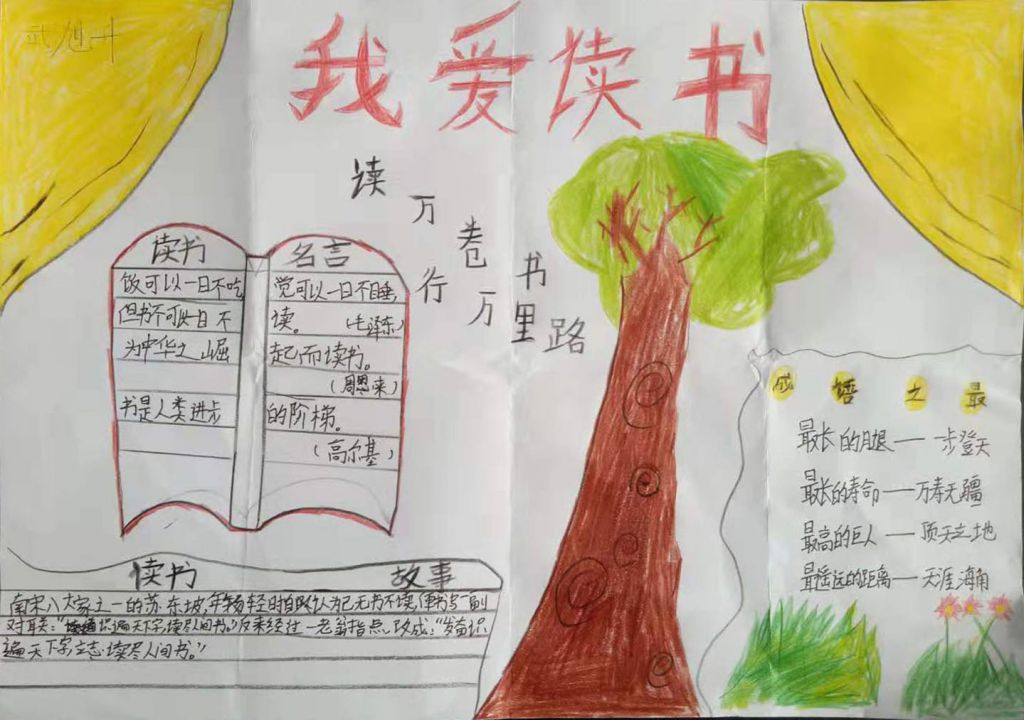 武旭升
我爱读书
读万卷书
行万里路
读书 名言
饭可以一日不吃 觉可以一日不睡,
但书不可以一日不 读。 (毛泽东)
为中华之崛 起而读书。
(周恩来)
书是人类进步 的阶梯。
(高尔基)
成语之最
最长的腿——一步登天
最长的寿命——万寿无疆
最高的巨人——顶天立地
最遥远的距离——天涯海角
读书 故事
南宋八大家之一的苏东坡,年轻时自以为已无书不读,便书写一副
对联:"识遍天下字,读尽人间书。"后来经过一老翁指点,改成:"发奋识
遍天下字,立志读尽人间书。"